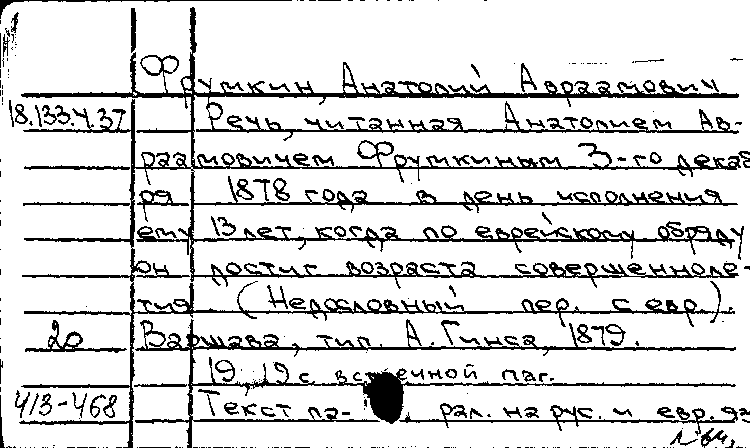 Фрумкин, Анатолий Авраамович
18.133.4.37 Речь, читанная Анатолием Ав-
раамовичем Фрумкиным 3-го декаб
ря 1878 года в день исполнения
ему 13 лет, когда по еврейскому обряду
он достиг возраста совершенноле-
тия. (Недословный пер. с евр.).
20 Варшава, тип. А. Гинса, 1879.
19, 19 с. встречной паг.
413-468 Текст па- рал. на рус. и евр. яз